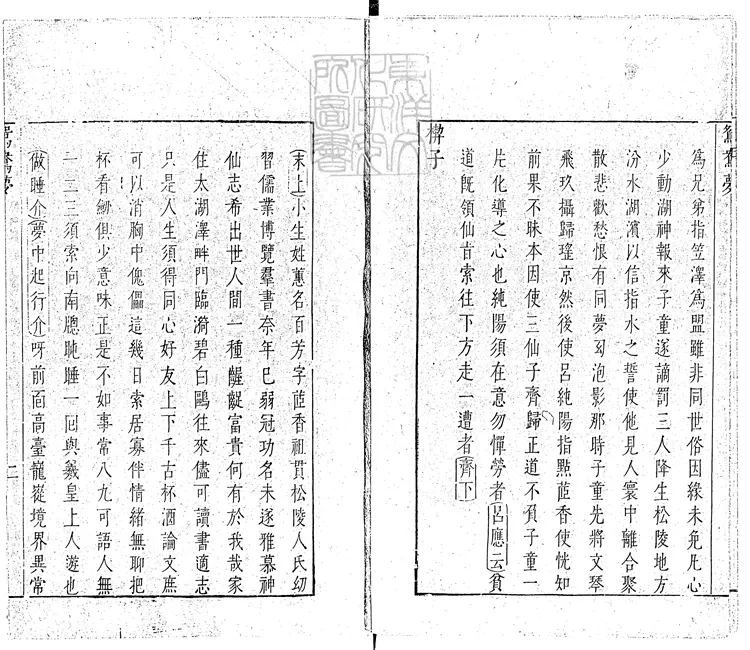 鴛鴦夢
為兄弟指笠澤為盟雖非同世俗因緣未免凡心
少動湖神報來子童遂謫罰三人降生松陵地方
汾水湖濱以信指水之誓使他見人寰中離合聚
散悲歡愁恨有同夢幻泡影那時子童先將文琴
飛玖攝歸瑤京然後使呂純陽指點茝香使恍知
前果不昧本因使三仙子齊歸正道不負子童一
片化導之心也純陽須在意勿憚勞者呂應云貧
道既領仙旨索往下方走一遭者齊下
楔子
末上小生姓蕙名百芳字茝香祖貫松陵人氏幼
習儒業博覽羣書奈年已弱冠功名未遂雅慕神
仙志希出世人間一種齷齪富貴何有於我哉家
住太湖澤畔門臨漪碧白鷗往來儘可讀書適志
只是人生須得同心好友上下千古杯酒論文庶
可以消胸中傀儡這幾日索居寡伴情緒無聊把
杯看劒俱少意味正是不如事常八九可語人無
一二三須索向南牕盹睡一囘與羲皇上人遊也
做睡介夢中起行介呀前面高臺巃嵷境界異常
鴛鴦夢
二